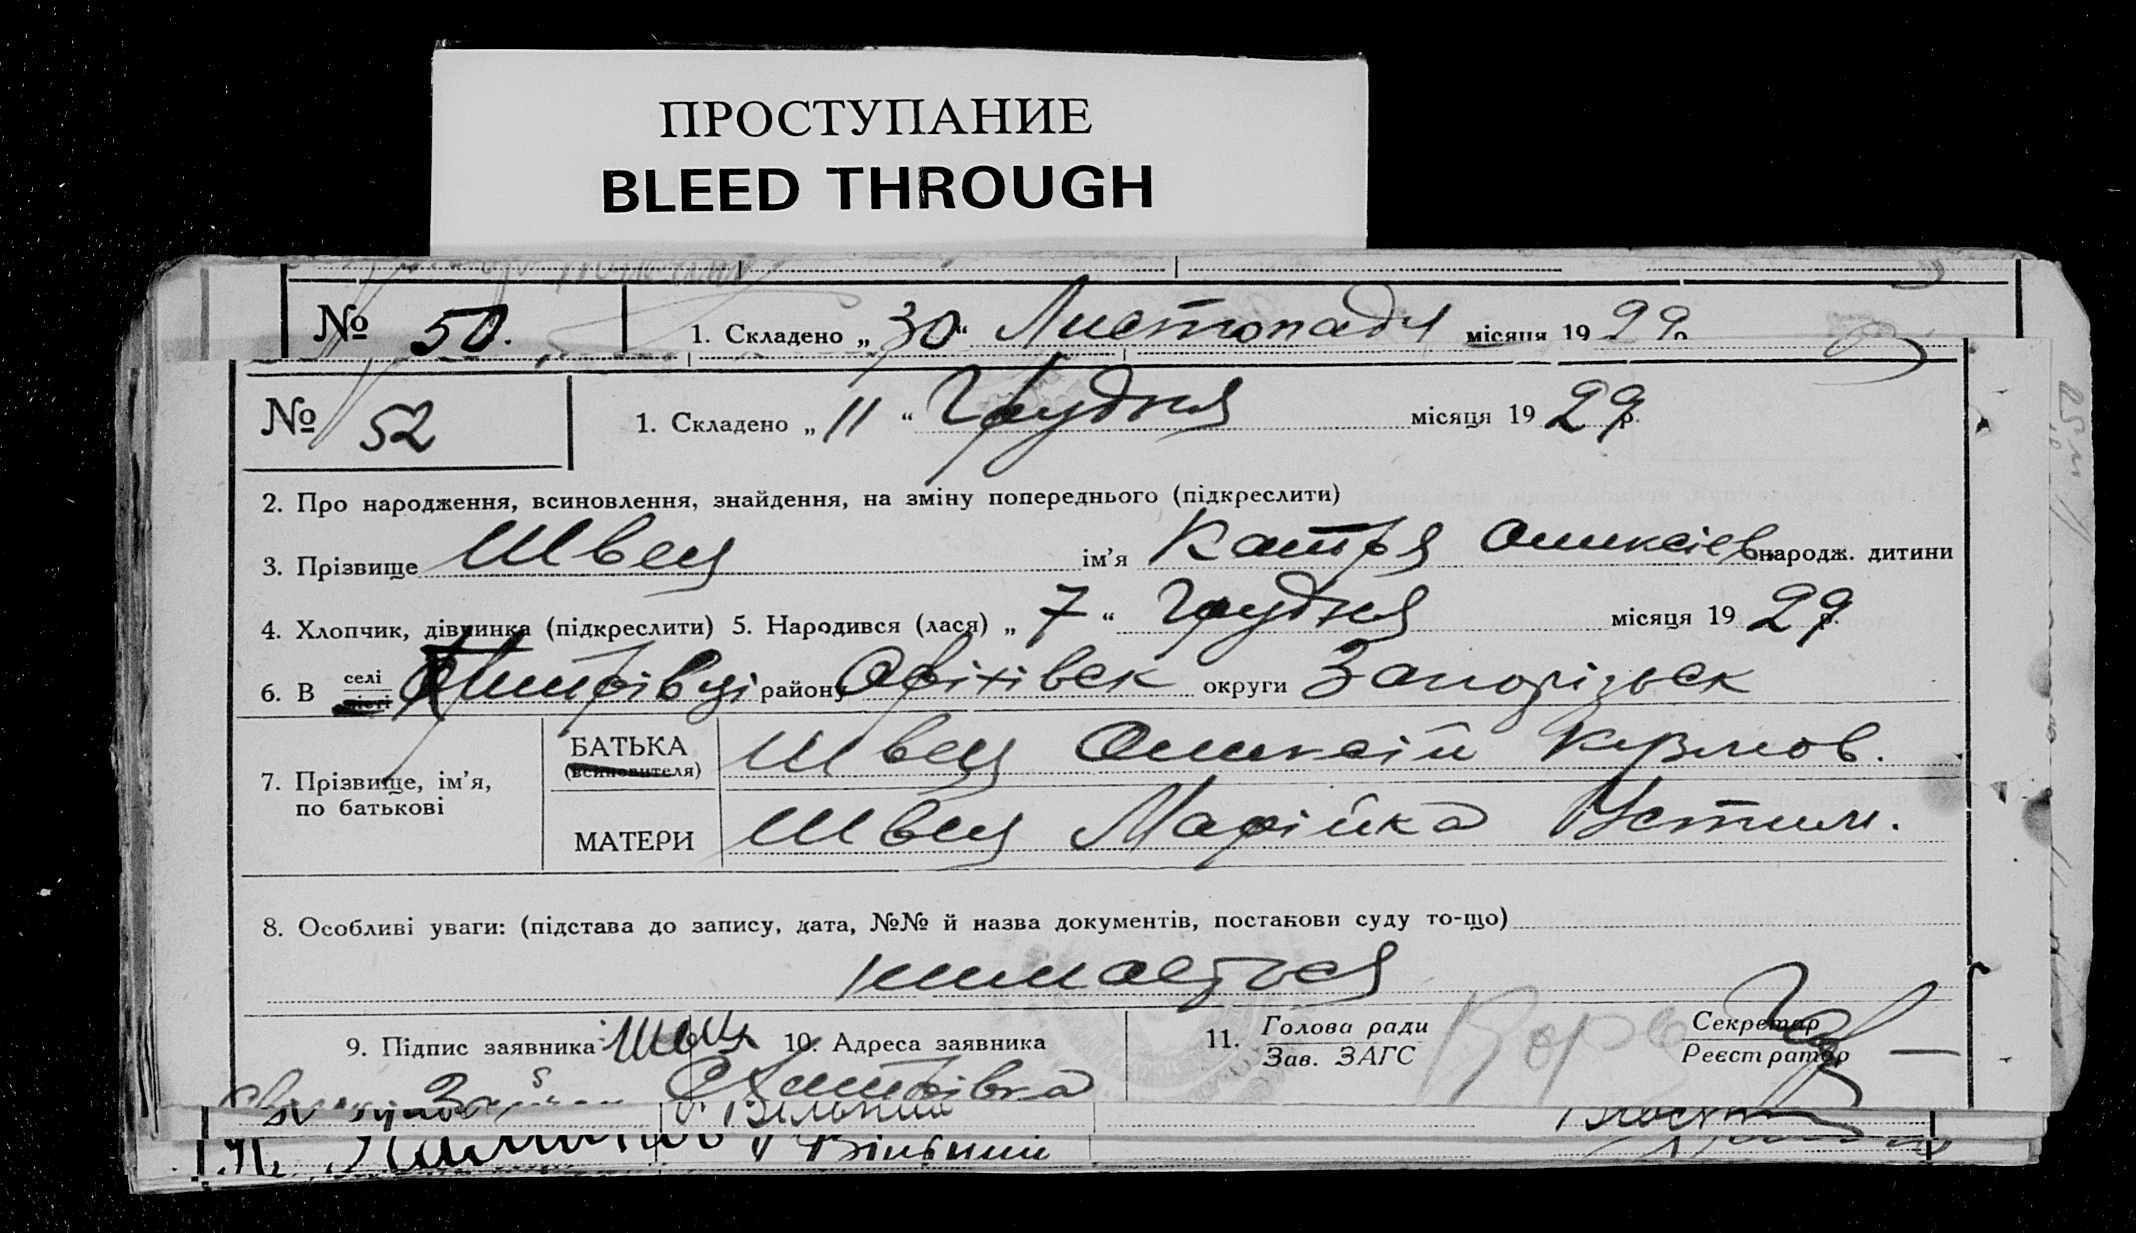 ПРОСТУПАНИЕ
BLEED THROUGH
№ 50. 1. Складено „ 30 “ Листопадя місяця 19 29 р.
№ 52 1. Складено „ 11 “ Грудня місяця 19 29 р.
2. Про народження, всиновлення, знайдення, на зміну попереднього (підкреслити)
3. Прізвище Швец ім’я Катря Олексіев народж. дитини
4. Хлопчик, дівчинка (підкреслити) 5. Народився (лася) „ 7 “ Грудня місяця 19 29 р.
6. В селі Дмитрівці району Оріхівск округи Запорізьск
7. Прізвище, ім’я, по батькові
БАТЬКА (всиновителя) Швец Олексій Кузмов.
МАТЕРИ Швец Марійка Устим.
8. Особливі уваги: (підстава до запису, дата, №№ й назва документів, постанови суду то-що)
нимається
9. Підпис заявника: Швец 10. Адреса заявника 11. Голова ради Зав. ЗАГС Секретар Реєстратор
Дмитрівка